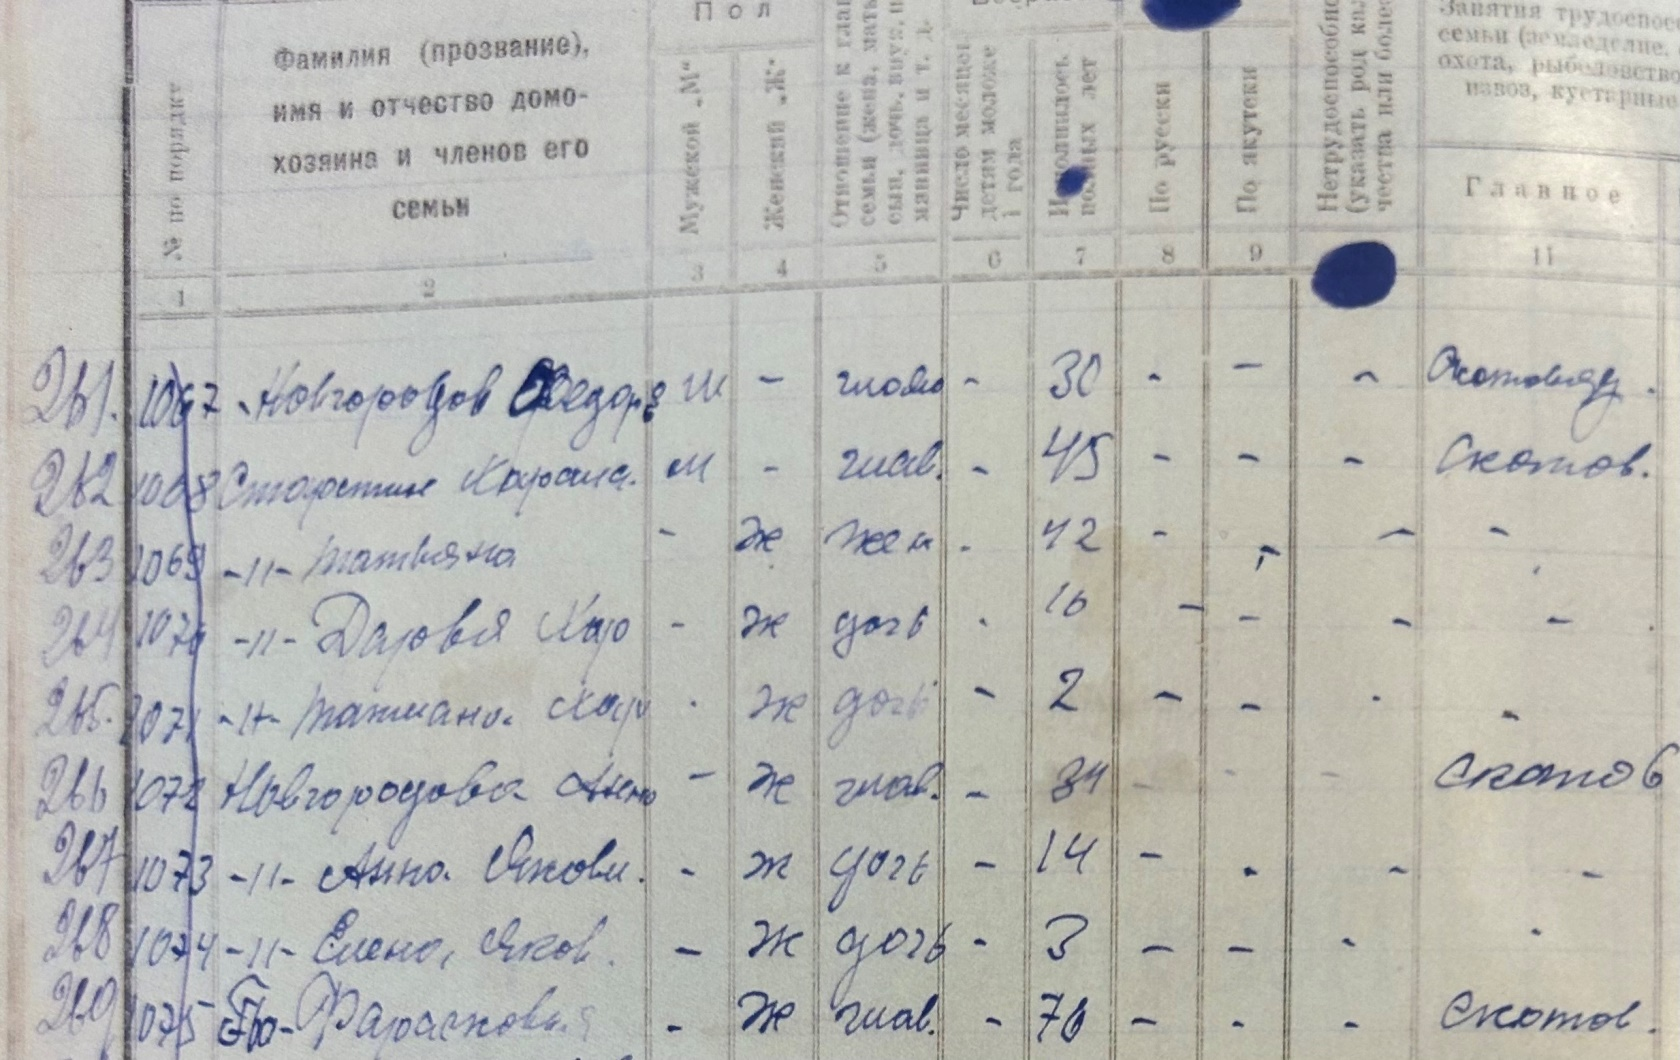 Пол
Фамилия (прозвание), имя и отчество домо-
хозяина и членов его
семьи
№ по порядку
Мужской „М“
Женский „Ж“
Отношение к глав
семьи (жена, мать
сын, дочь, внук, п
мянница и т. д.
Число месяцев
детям моложе
1 года
Исполнилось
полных лет
По русски
По якутски
Нетрудоспособно
(указать род кал
чества или боле
Занятия трудоспос
семьи (земледелие,
охота, рыболовство
извоз, кустарные
Главное
1 2 3 4 5 6 7 8 9 11
261. 1067 Новгородов Федор М - глава - 30 - - - Скотовод.
262 1068 Старостин М - глав. - 45 - - - Скотов.
263 1069 -"- Татьяна - Ж жен - 42 - - - -
264 1070 -"- Дарья Хар - Ж дочь - 16 - - - -
265. 1071 -"- Татиана Хар - Ж дочь - 2 - - - -
266 1072 Новгородова Анна - Ж глав. - 34 - - - скотов
267 1073 -"- Анна Яковл. - Ж дочь - 14 - - - -
268 1074 -"- Елена Яков. - Ж дочь - 3 - - - -
269 1075 -"- Парасковья - Ж глав. - 76 - - - скотов.